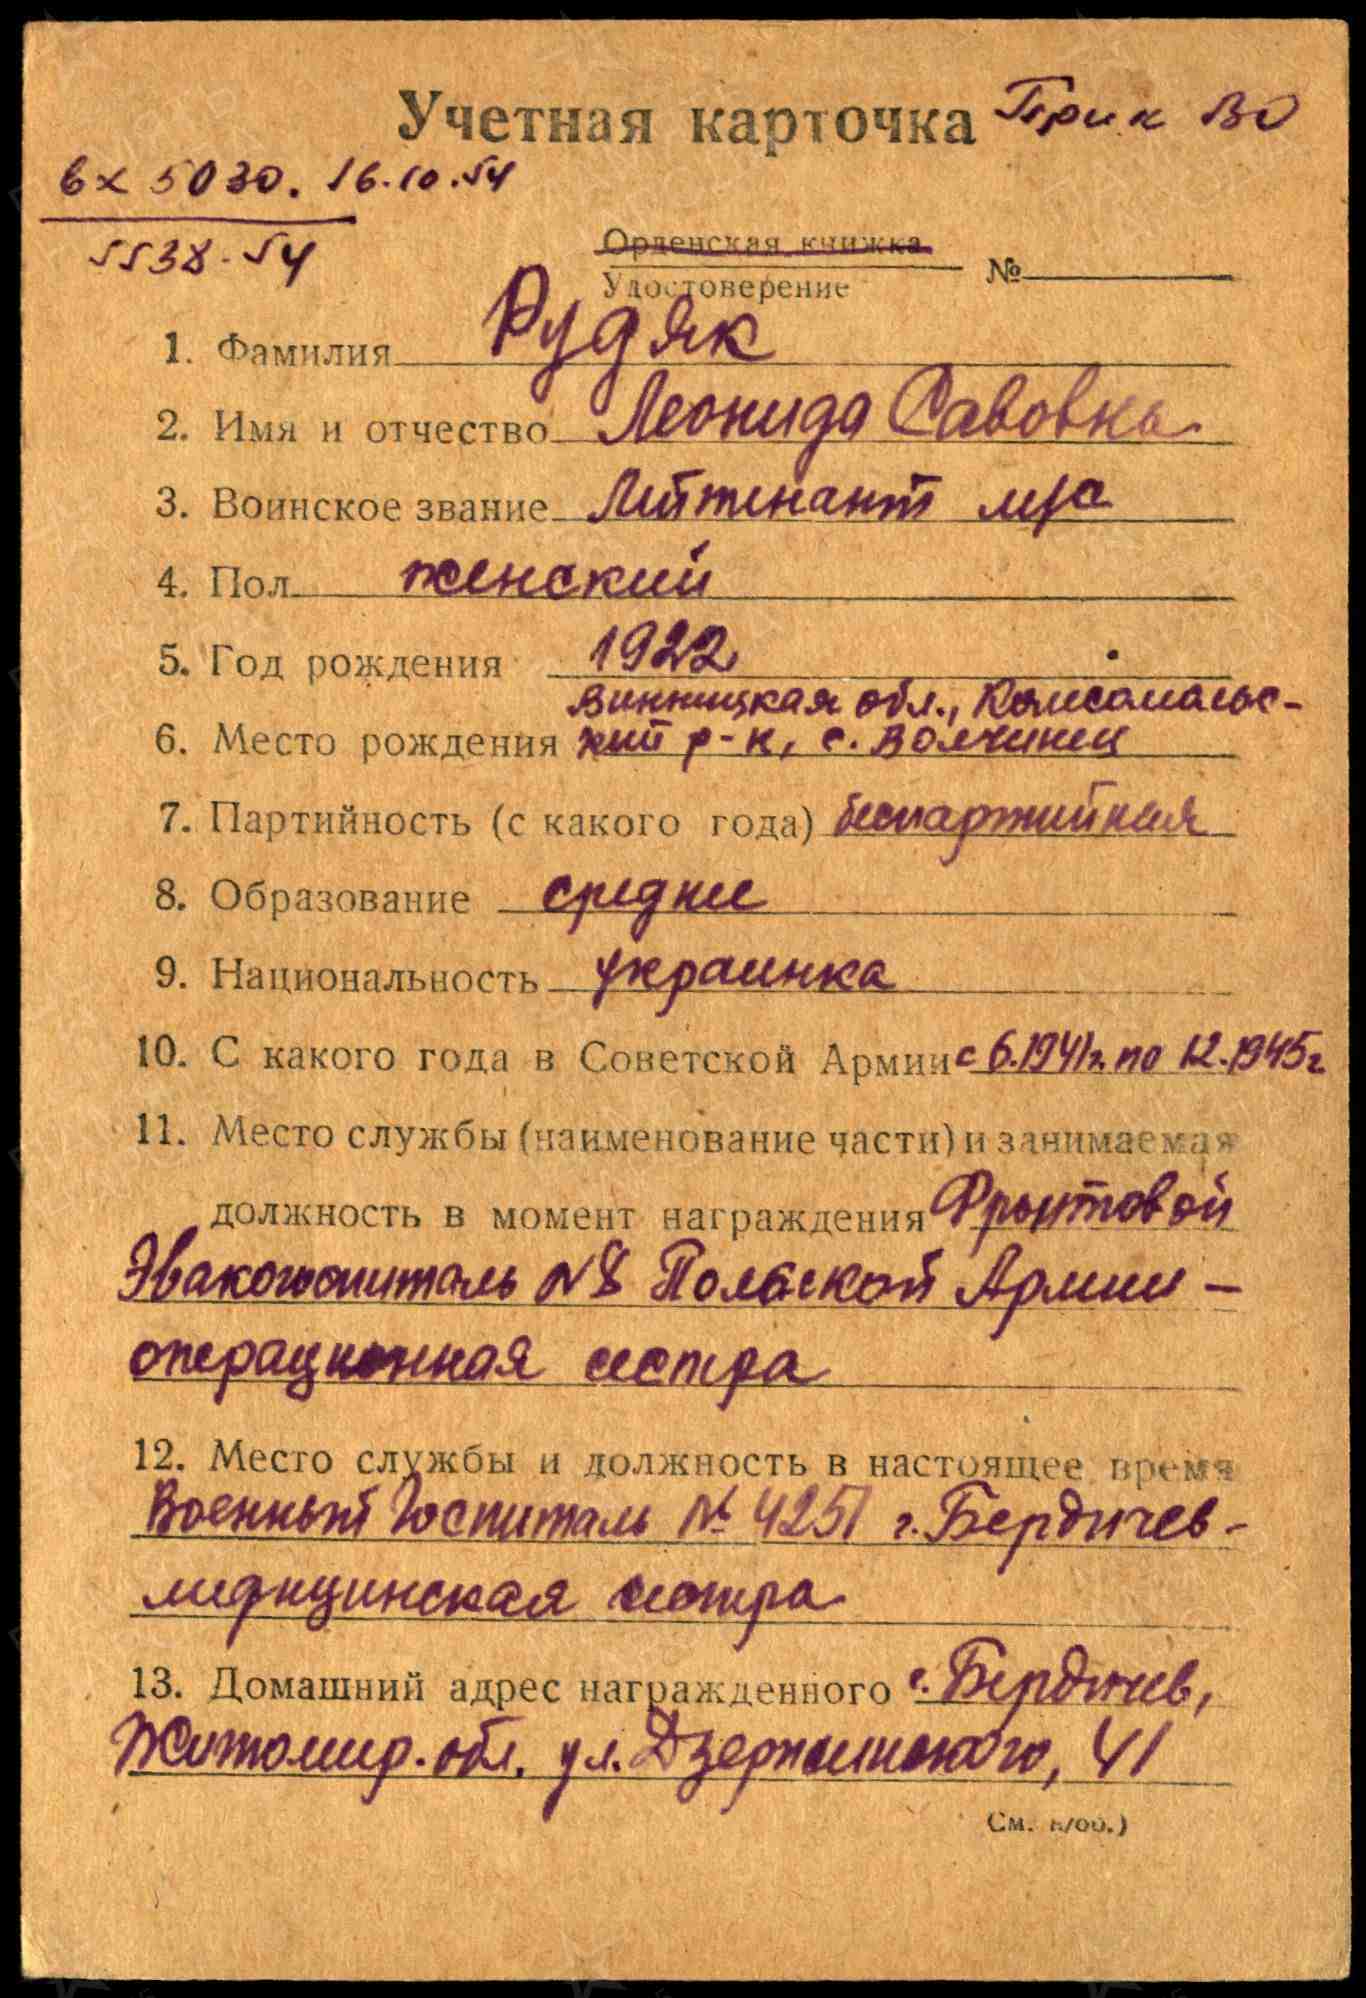 Учетная карточка Прик ВО
вх 5030. 16.10.54
5538.54
Орденская книжка
Удостоверение №
1. Фамилия Рудяк
2. Имя и отчество Леонида Савовна
3. Воинское звание Лейтенант м/с
4. Пол женский
5. Год рождения 1922
Винницкая обл., Комсомольс-
6. Место рождения кий р-н, с. Волчинец
7. Партийность (с какого года) беспартийная
8. Образование среднее
9. Национальность украинка
10. С какого года в Советской Армии с 6.1941г. по 12.1945г
11. Место службы (наименование части) и занимаемая
должность в момент награждения Фронтовой
Эвакогоспиталь №8 Польской Армии –
операционная сестра
12. Место службы и должность в настоящее время
Военный Госпиталь № 4251 г. Бердичев –
медицинская сестра
13. Домашний адрес награжденного г. Бердичев,
Житомир. обл. ул. Дзержинского, 41
См. н/об.)